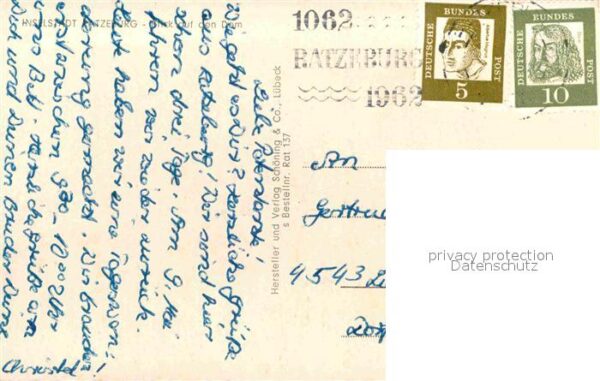 INSELSTADT RATZEBURG - Blick auf den Dom
Liebe Patentante!
Wie geht es Dir? Herzliche Grüße
aus Ratzeburg! Wir sind hier
schon drei Tage. Am 9. Mai
fahren wir wieder zurück.
Heute haben wir eine Tages
gemacht. Wir brauchen
erst zwischen 9³⁰-10⁰⁰ Uhr
ins Bett. Herzliche Grüße an
Dich und Deinen Bruder Deine
Christel
Hersteller und Verlag Schöning & Co., Lübeck
s Bestellnr. Rat 137
1062
RATZEBURG
1962
DEUTSCHE BUNDES POST
5
DEUTSCHE BUNDES POST
10
An
Gertru
4543
privacy protection
Datenschutz